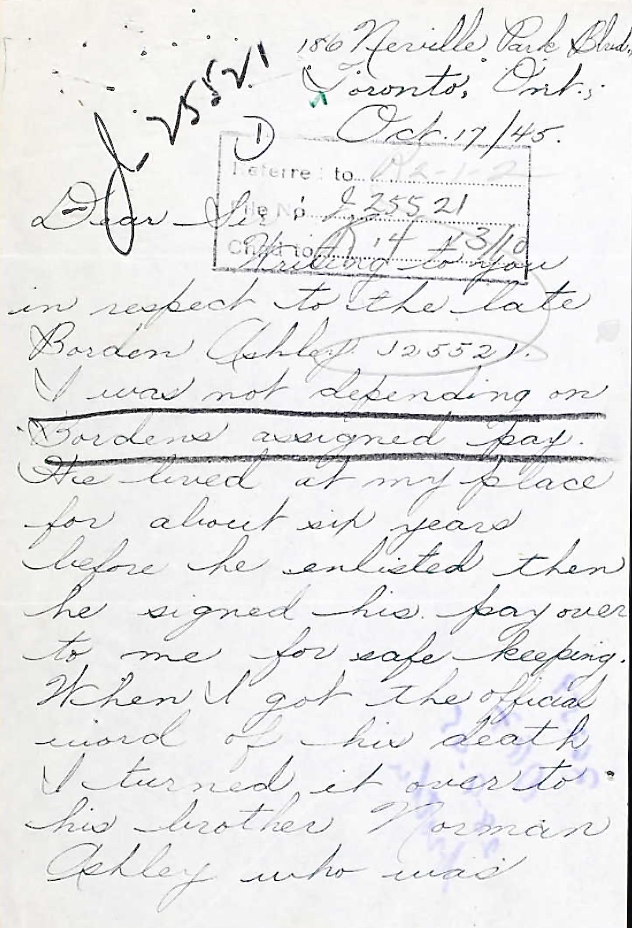 186 Neville Park Blvd,
Toronto, Ont.,
Oct. 17/45.
J. 25521
1
Referred to R2-1-2
File No. J 25521
Chgd to
Dear Sir;
Writing to you
in respect to the late
Borden Ashley. J25521.
I was not depending on
Bordens assigned pay.
He lived at my place
for about six years
before he enlisted then
he signed his pay over
to me for safe keeping.
When I got the official
word of his death
I turned it over to
his brother Norman
Ashley who was